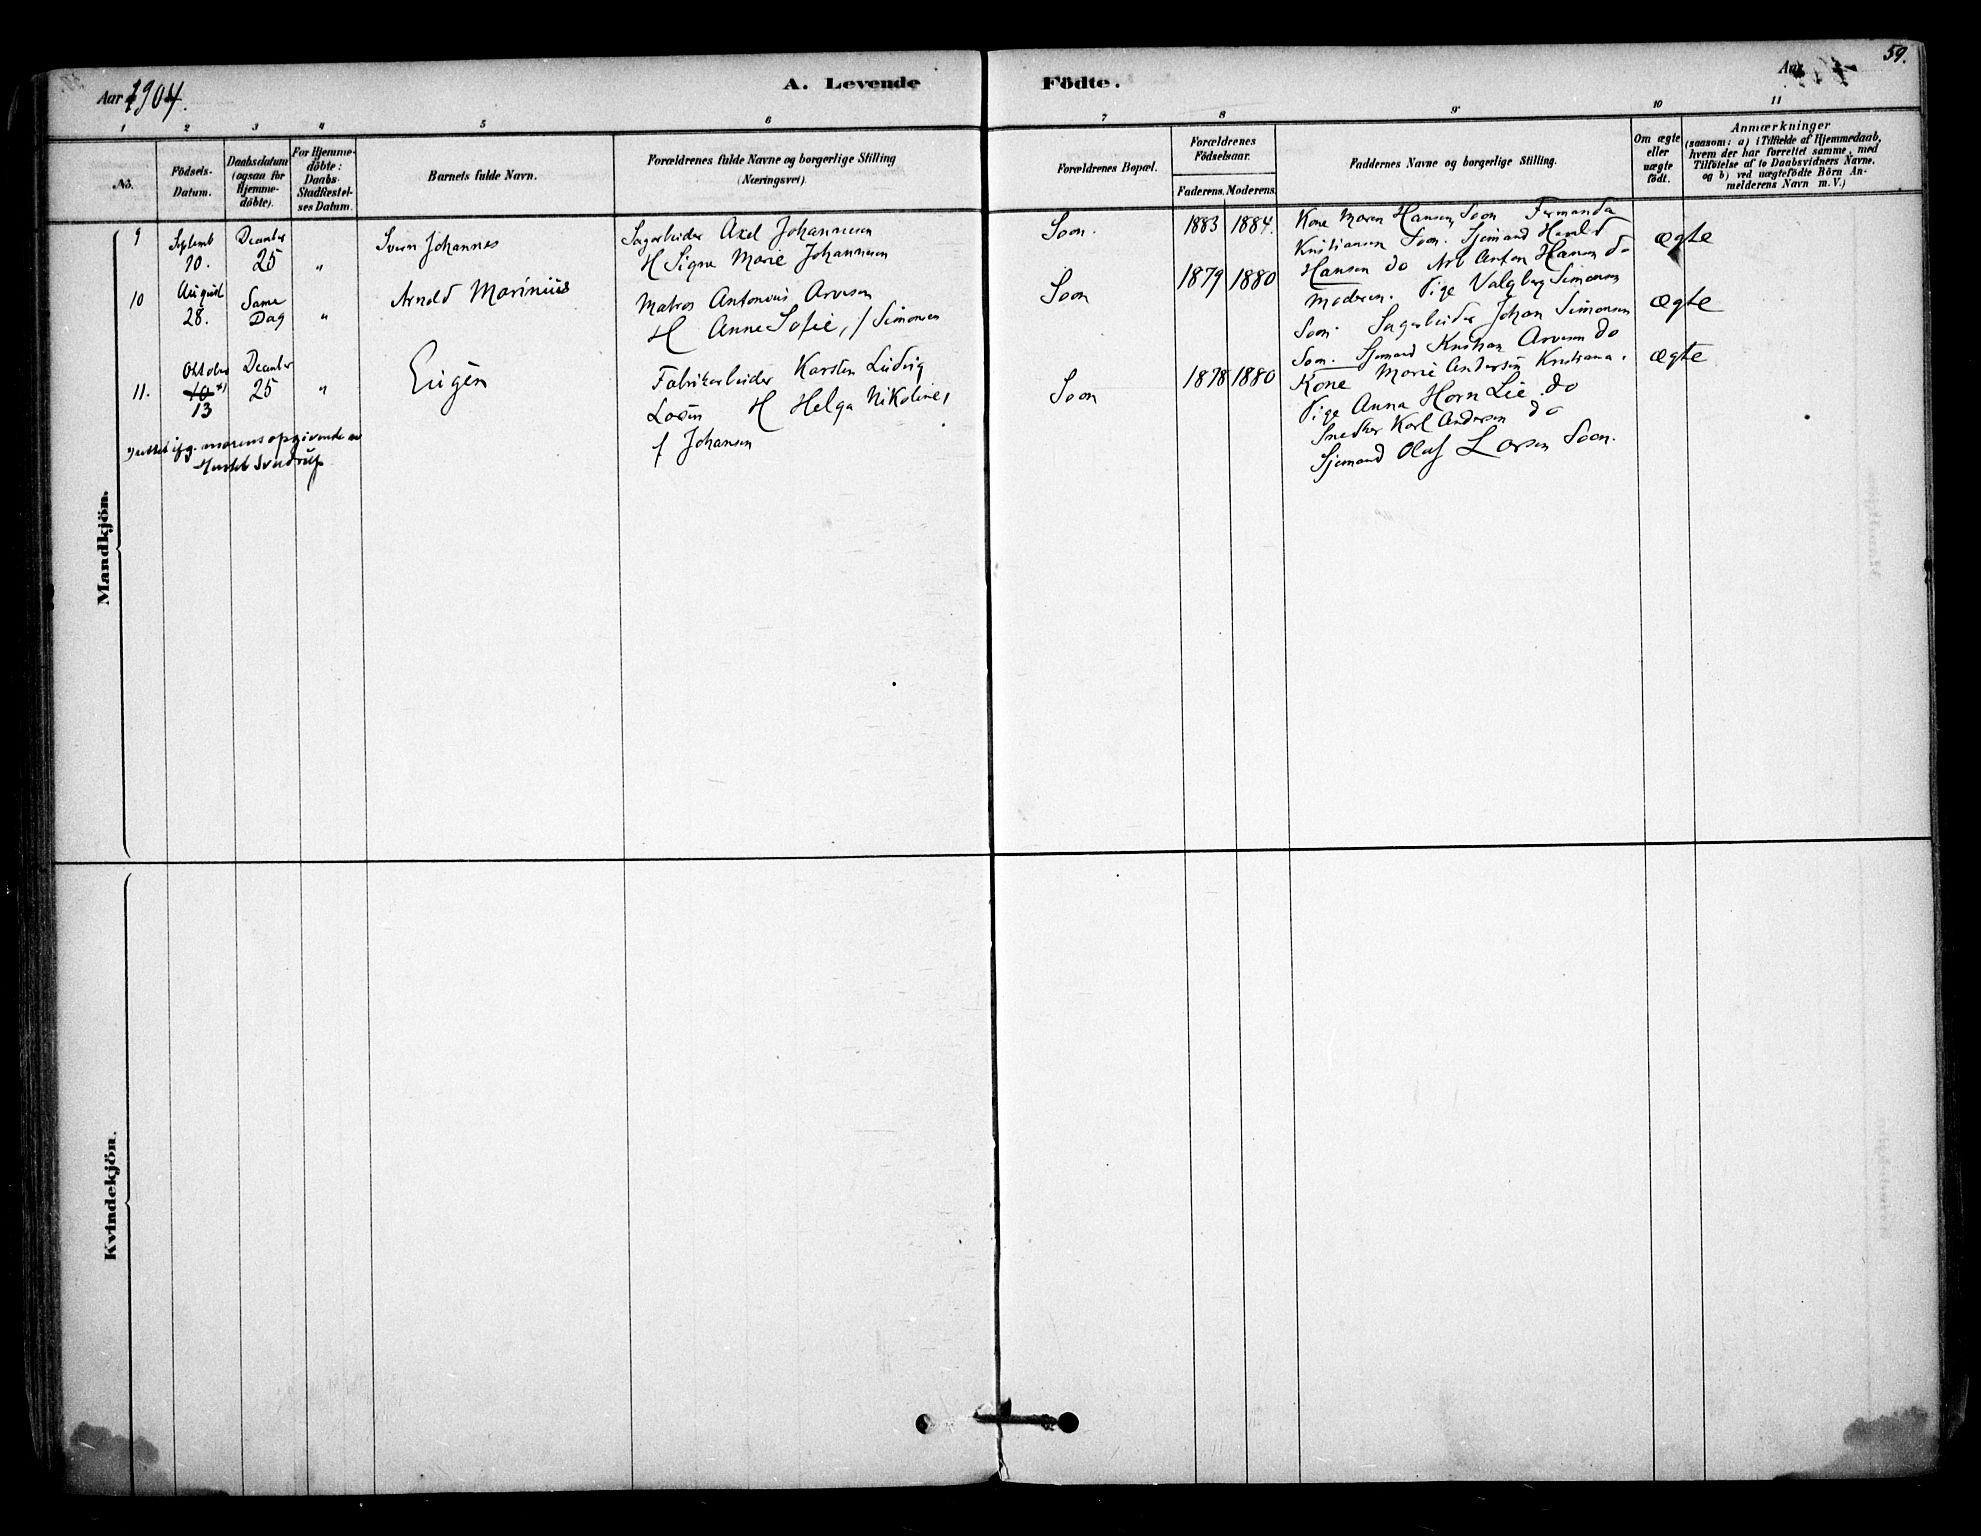 59.
Aar 1904.
A. Levende Födte.
Aar
1 2 3 4 5 6 7 8 9 10 11
No.
Födsels-
Datum.
Daabsdatum
(ogsaa for
Hjemme-
döbte).
For Hjemme-
döbte:
Daabs-
Stadfæstel-
ses Datum.
Barnets fulde Navn.
Forældrenes fulde Navne og borgerlige Stilling
(Næringsvei).
Forældrenes Bopæl.
Forældrenes
Födselsaar.
Faderens. Moderens.
Faddernes Navne og borgerlige Stilling.
Om ægte
eller
uægte
födt.
Anmærkninger
(saasom: a) i Tilfælde af Hjemmedaab,
hvem der har forrettet samme, med
Tilföielse af to Daabsvidners Navne.
og b) ved uægtefödte Börn An-
melderens Navn m. V.)
Mandkjön.
9
Septemb
10.
December
25
"
Svern Johannes
Sagarbeider Axel Johannesen
H Signe Marie Johannesen
Soon.
1883 1884.
Kone Maren Hansen Soon Fernanda
Kristiansen Soon. Sjømand Harald
Hansen do Arb Anton Hansen do
ægte
10
August
28.
Same
Dag
"
Arnold Marinius
Matros Antonius Arvesen
H Anne Sofie, f Simonsen
Soon
1879 1880
Moderen. Pige Valgborg Simonsen
Soon. Sagarbeider Johan Simonsen
Soon. Sjømand Kristian Arvesen do
ægte
11.
Oktober
10 *)
13
December
25
"
Eugen
Fabrikarbeider Karsten Ludvig
Larsen H Helga Nikoline,
f Johansen
Soon
1878 1880
Kone Marie Andersen Kristiania.
Pige Anna Horn Lie. do
Snedker Karl Andersen do
Sjømand Olaf Larsen Soon.
ægte
*) rettet ifg. morens opgivende av
Kvindekjön.